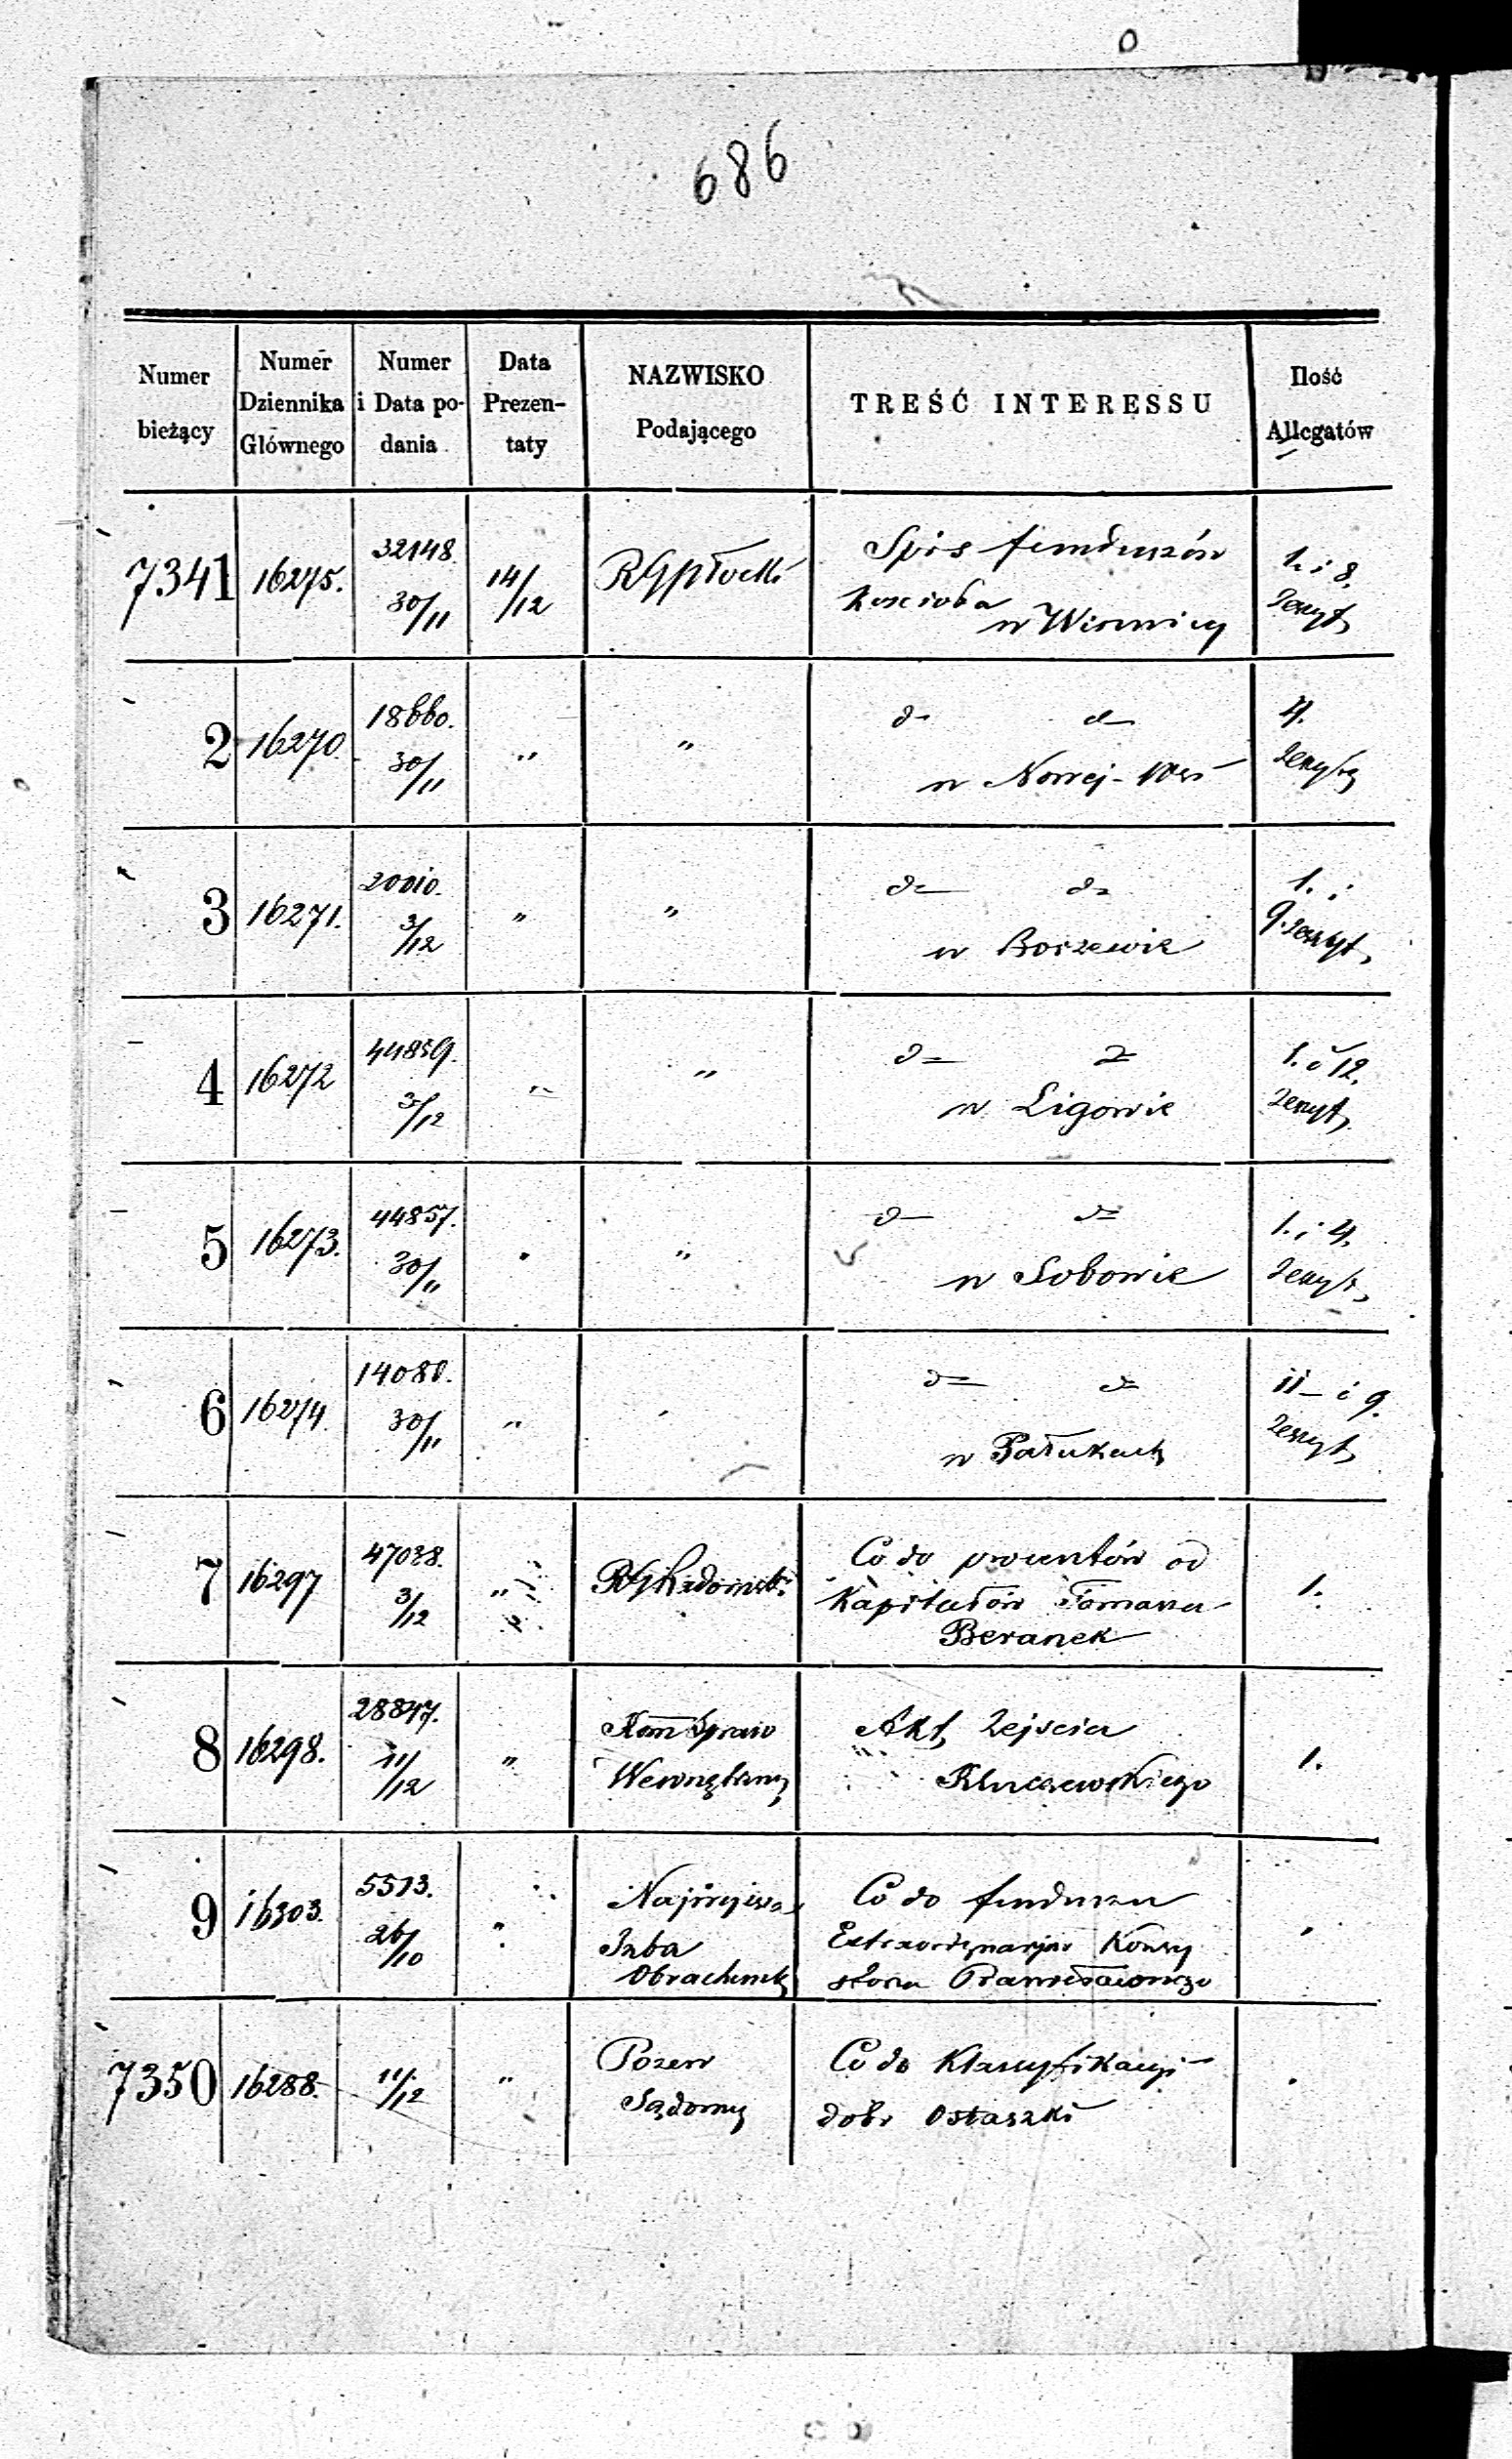 686
Numer bieżący | Numer Dziennika Głównego | Numer i Data podania | Data Prezentaty | NAZWISKO Podającego | TREŚĆ INTERESSU | Ilość Allegatów
7341 | 16275. | 32148. 30/11 | 14/12 | RGPłocki | Spis funduszów kościoła w Winnicy | 1. i 8. zeszyt
2 | 16270. | 18660. 30/11 | " | " | do do w Nowej-Wsi | 4. zeszyty
3 | 16271. | 20010. 3/12 | " | " | do do w Borzewie | 1. i 9. zeszyt
4 | 16272 | 44859. 3/12 | " | " | do do w Ligowie | 1. i 12. zeszyt
5 | 16273. | 44857. 30/11 | " | " | do do w Sobowie | 1. i 4. zeszyt
6 | 16274. | 14080. 30/11 | " | " | do do w Pałukach | 11 i 9. zeszyt
7 | 16297 | 47038. 3/12 | " | RGRadomski | Co do procentów od Kapitałów Tomasza Beranek | 1.
8 | 16298. | 28847. 11/12 | " | Kom Spraw Wewnętrzny | Akt zejścia Kluczewskiego | 1.
9 | 16303. | 5513. 26/10 | " | Najwyższa Izba Obrachunk | Co do funduszu Extraordynaryjn Konsystorza | "
7350 | 16288. | 11/12 | " | Pozew Sądowy | Co do Klassyfikacyi dóbr Ostaszki | "